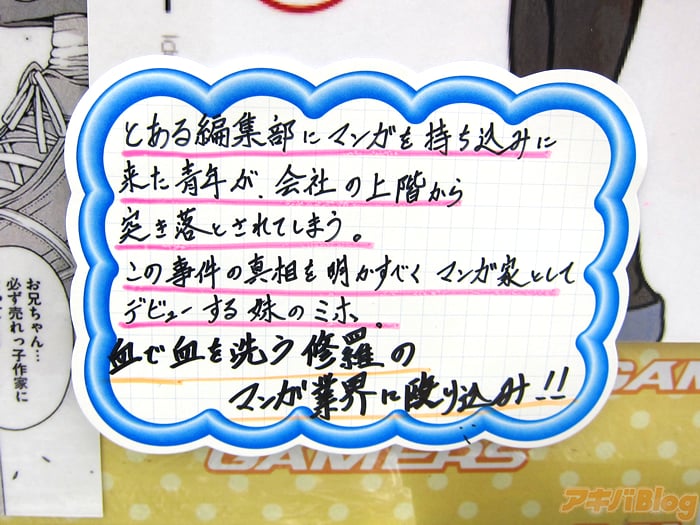 とある編集部にマンガを持ち込みに
来た青年が、会社の上階から
突き落とされてしまう。
この事件の真相を明かすべく マンガ家として
デビューする妹のミホ。
血で血を洗う修羅の
マンガ業界に殴り込み!!
お兄ちゃん…
必ず売れっ子作家に
GAMERS
GAM
アキバBlog